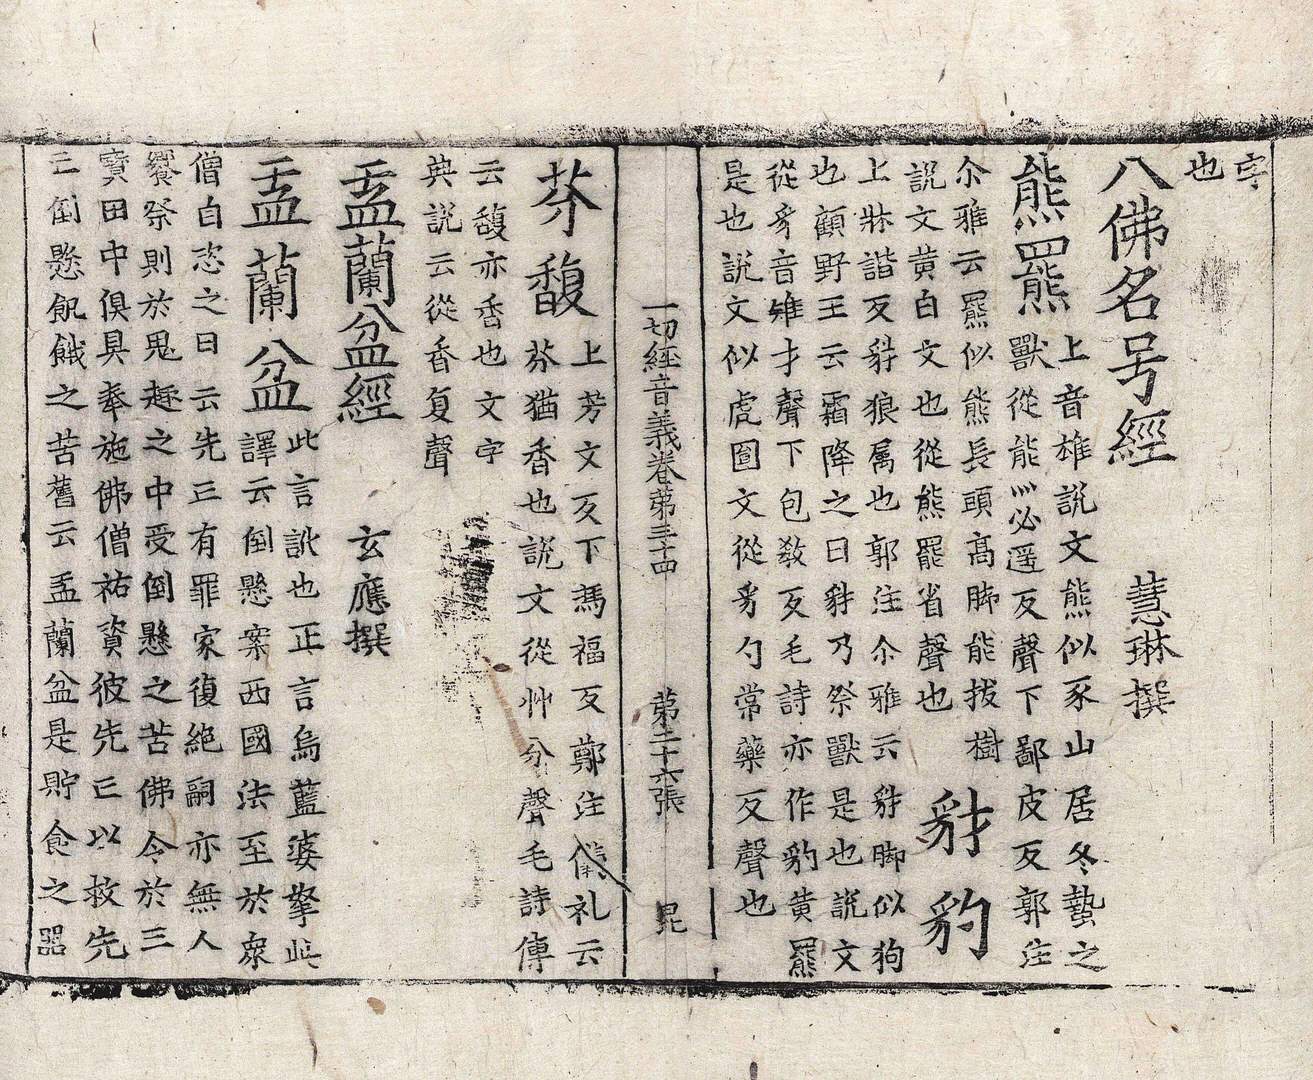 字
也
八佛名号經　慧琳撰
熊羆
上音雄說文熊似豕山居冬蟄之
獸從能灬必遥反聲下鄙皮反郭注
尒雅云羆似熊長頭高脚能拔樹
說文黄白文也從熊罷省聲也
豺豹
上牀諧反豺狼属也郭注尒雅云豺脚似狗
也顧野王云霜降之日豺乃祭獸是也說文
從豸音雉才聲下包教反毛詩亦作豹黄羆
是也說文似虎圓文從豸勺常藥反聲也
一切經音義卷第三十四　第二十六張　昆
芬馥
上芳文反下馮福反鄭注儀礼云
芬猶香也說文從艸分聲毛詩傳
云馥亦香也文字
典説云從香复聲
盂蘭盆經　玄應撰
盂蘭盆
此言訛也正言烏藍婆拏此
譯云倒懸案西國法至於衆
僧自恣之日云先亡有罪家復絶嗣亦無人
饗祭則於鬼趣之中受倒懸之苦佛令於三
寶田中俱具奉施佛僧祐資彼先亡以救先
亡倒懸飢餓之苦舊云盂蘭盆是貯食之器